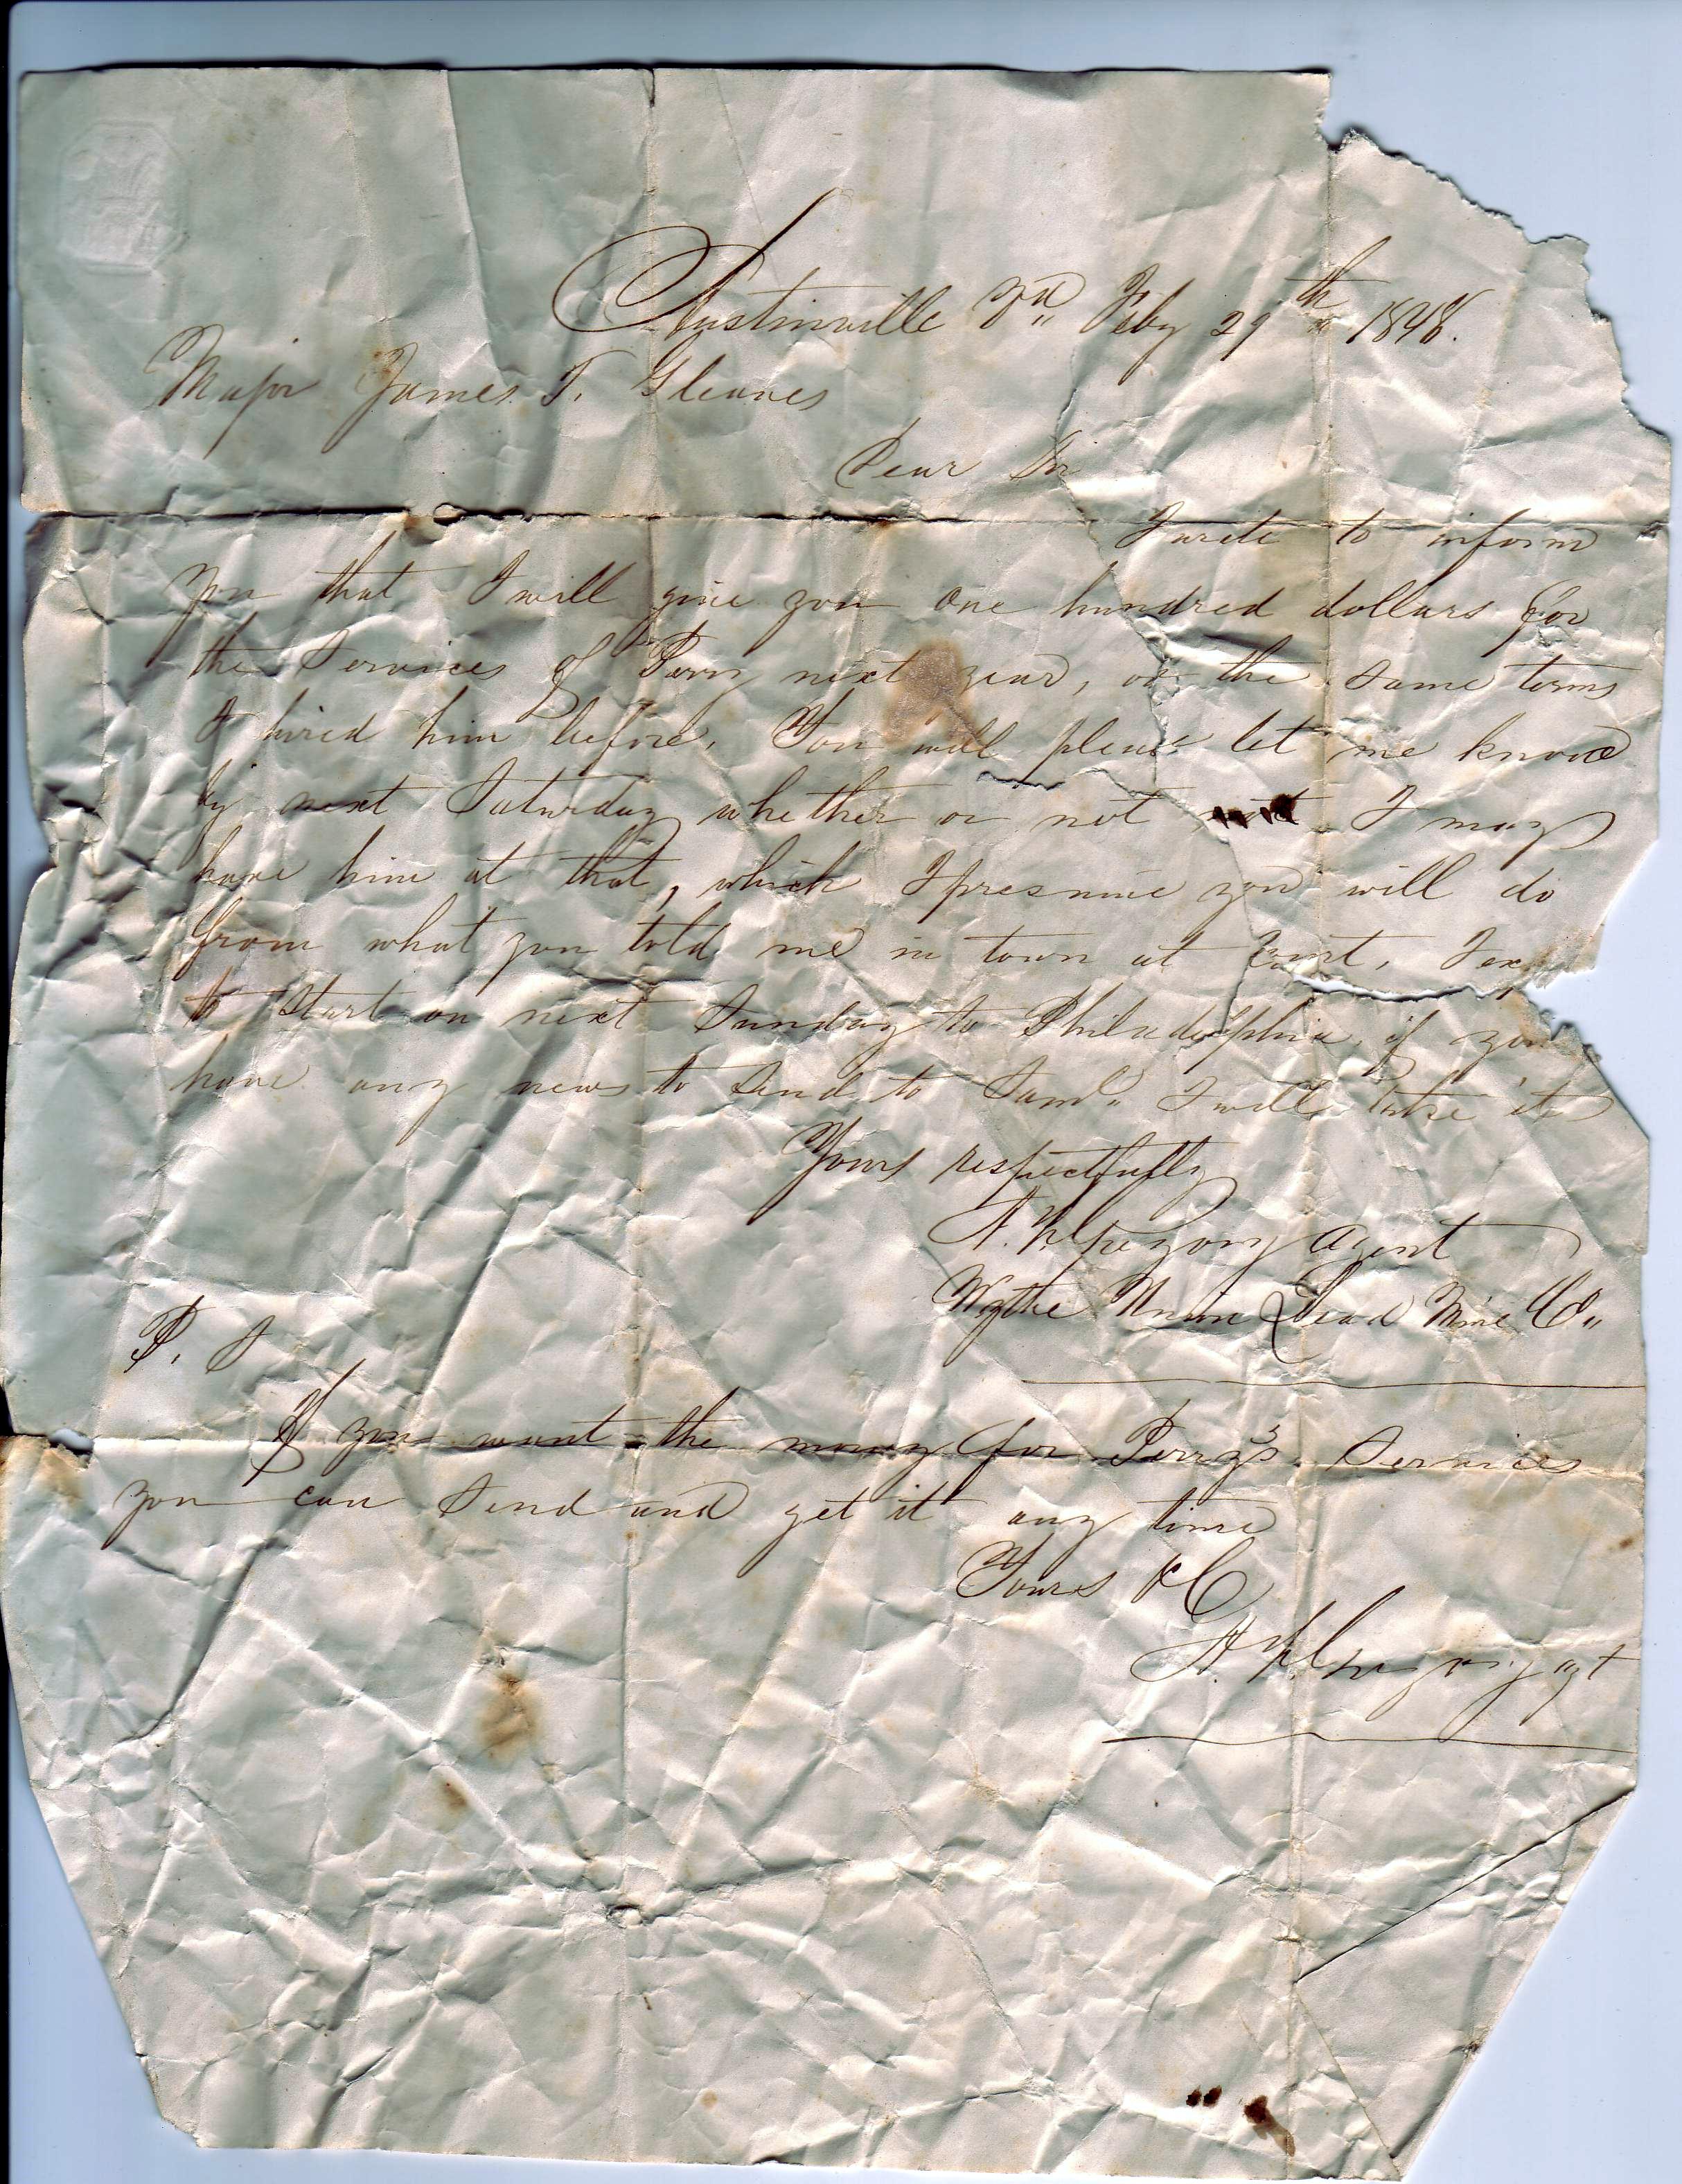 Austinville Va Feby 29th 1848.
Major James T. Gleaves
Dear Sir
I write to inform
you that I will give you one hundred dollars for
the Services of Perry next year, on the same terms
I hired him before. You will please let me know
by next Saturday whether or not I may
have him at that, which I presume you will do
from what you told me in town at Court, I
to Start on next Sunday to Philadelphia, if you
have any news to Send to Saml. I will take it
Yours respectfully
A. N. Gregory Agent
Wythe Union Lead Mine Co,,
P. S
If you want the money for Perry's Services
you can Send and get it any time
Yours &C
A. N. Gregory agt